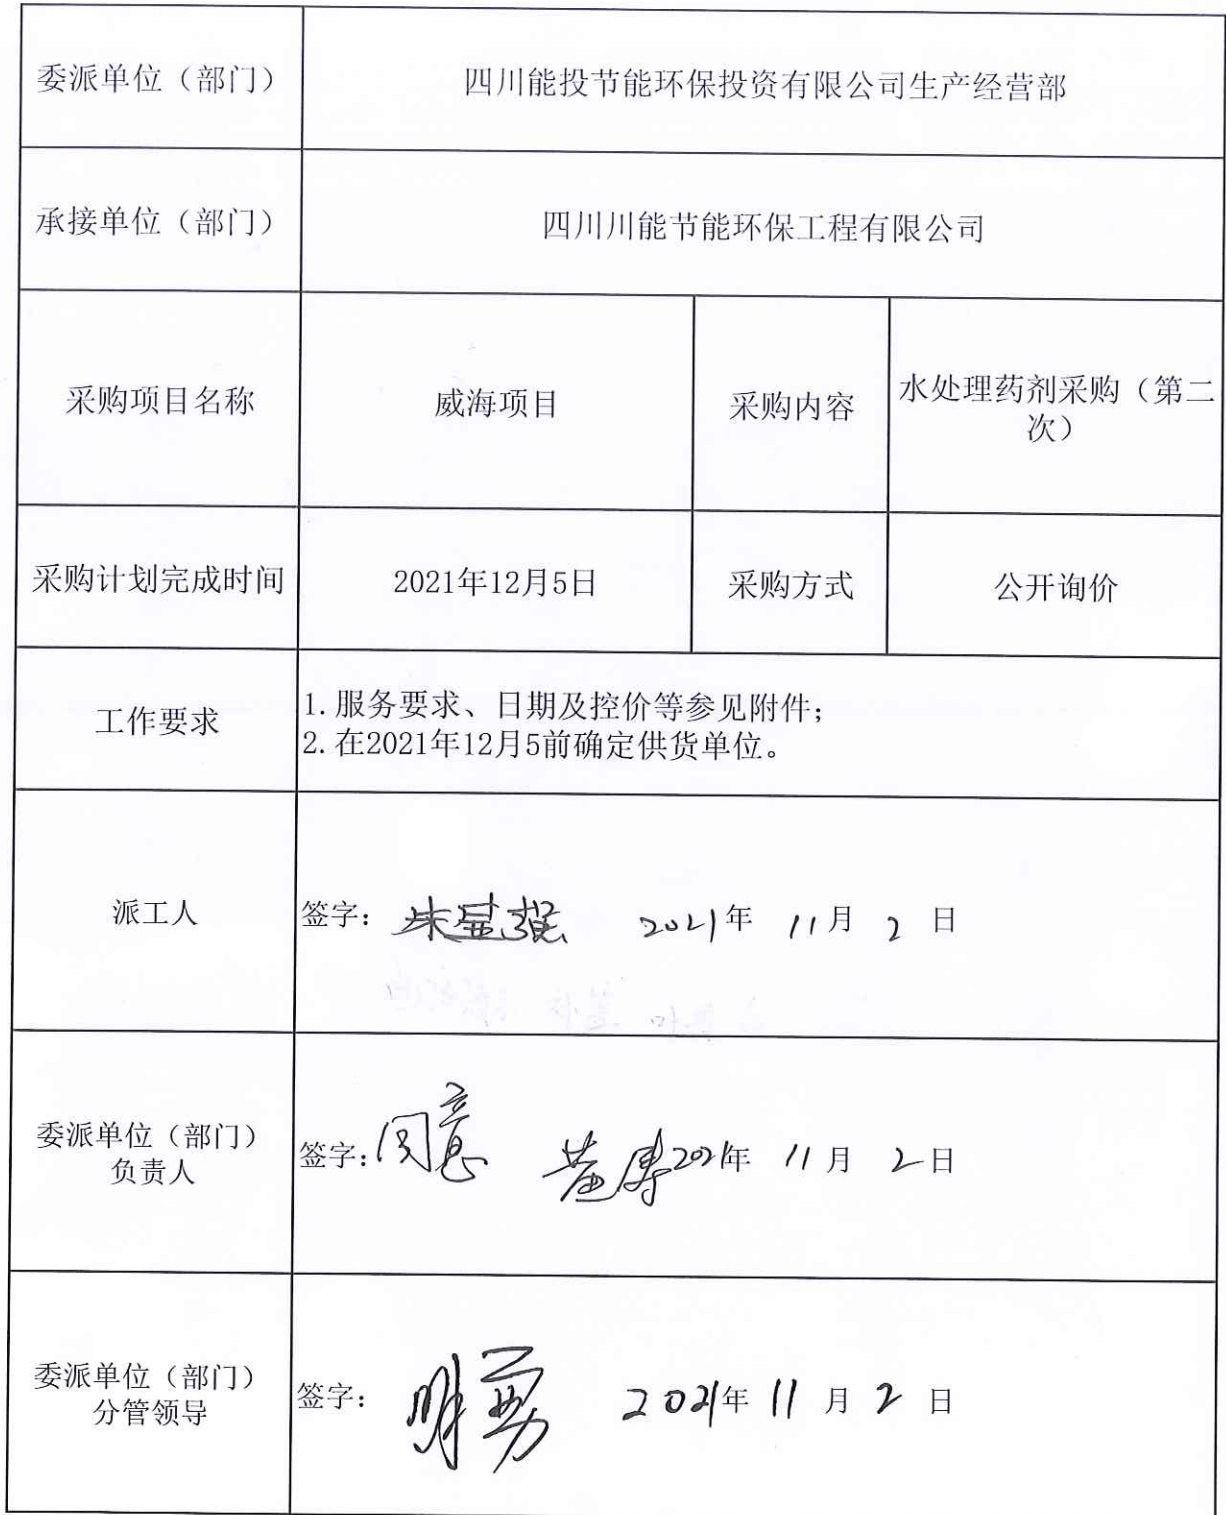 委派单位（部门）
四川能投节能环保投资有限公司生产经营部
承接单位（部门）
四川川能节能环保工程有限公司
采购项目名称
威海项目
采购内容
水处理药剂采购（第二
次）
采购计划完成时间
2021年12月5日
采购方式
公开询价
工作要求
1.服务要求、日期及控价等参见附件；
2.在2021年12月5前确定供货单位。
派工人
签字： 2021年 11月 2 日
委派单位（部门）
负责人
签字：同意 2021年 11月 2日
委派单位（部门）
分管领导
签字： 2021年 11月 2 日